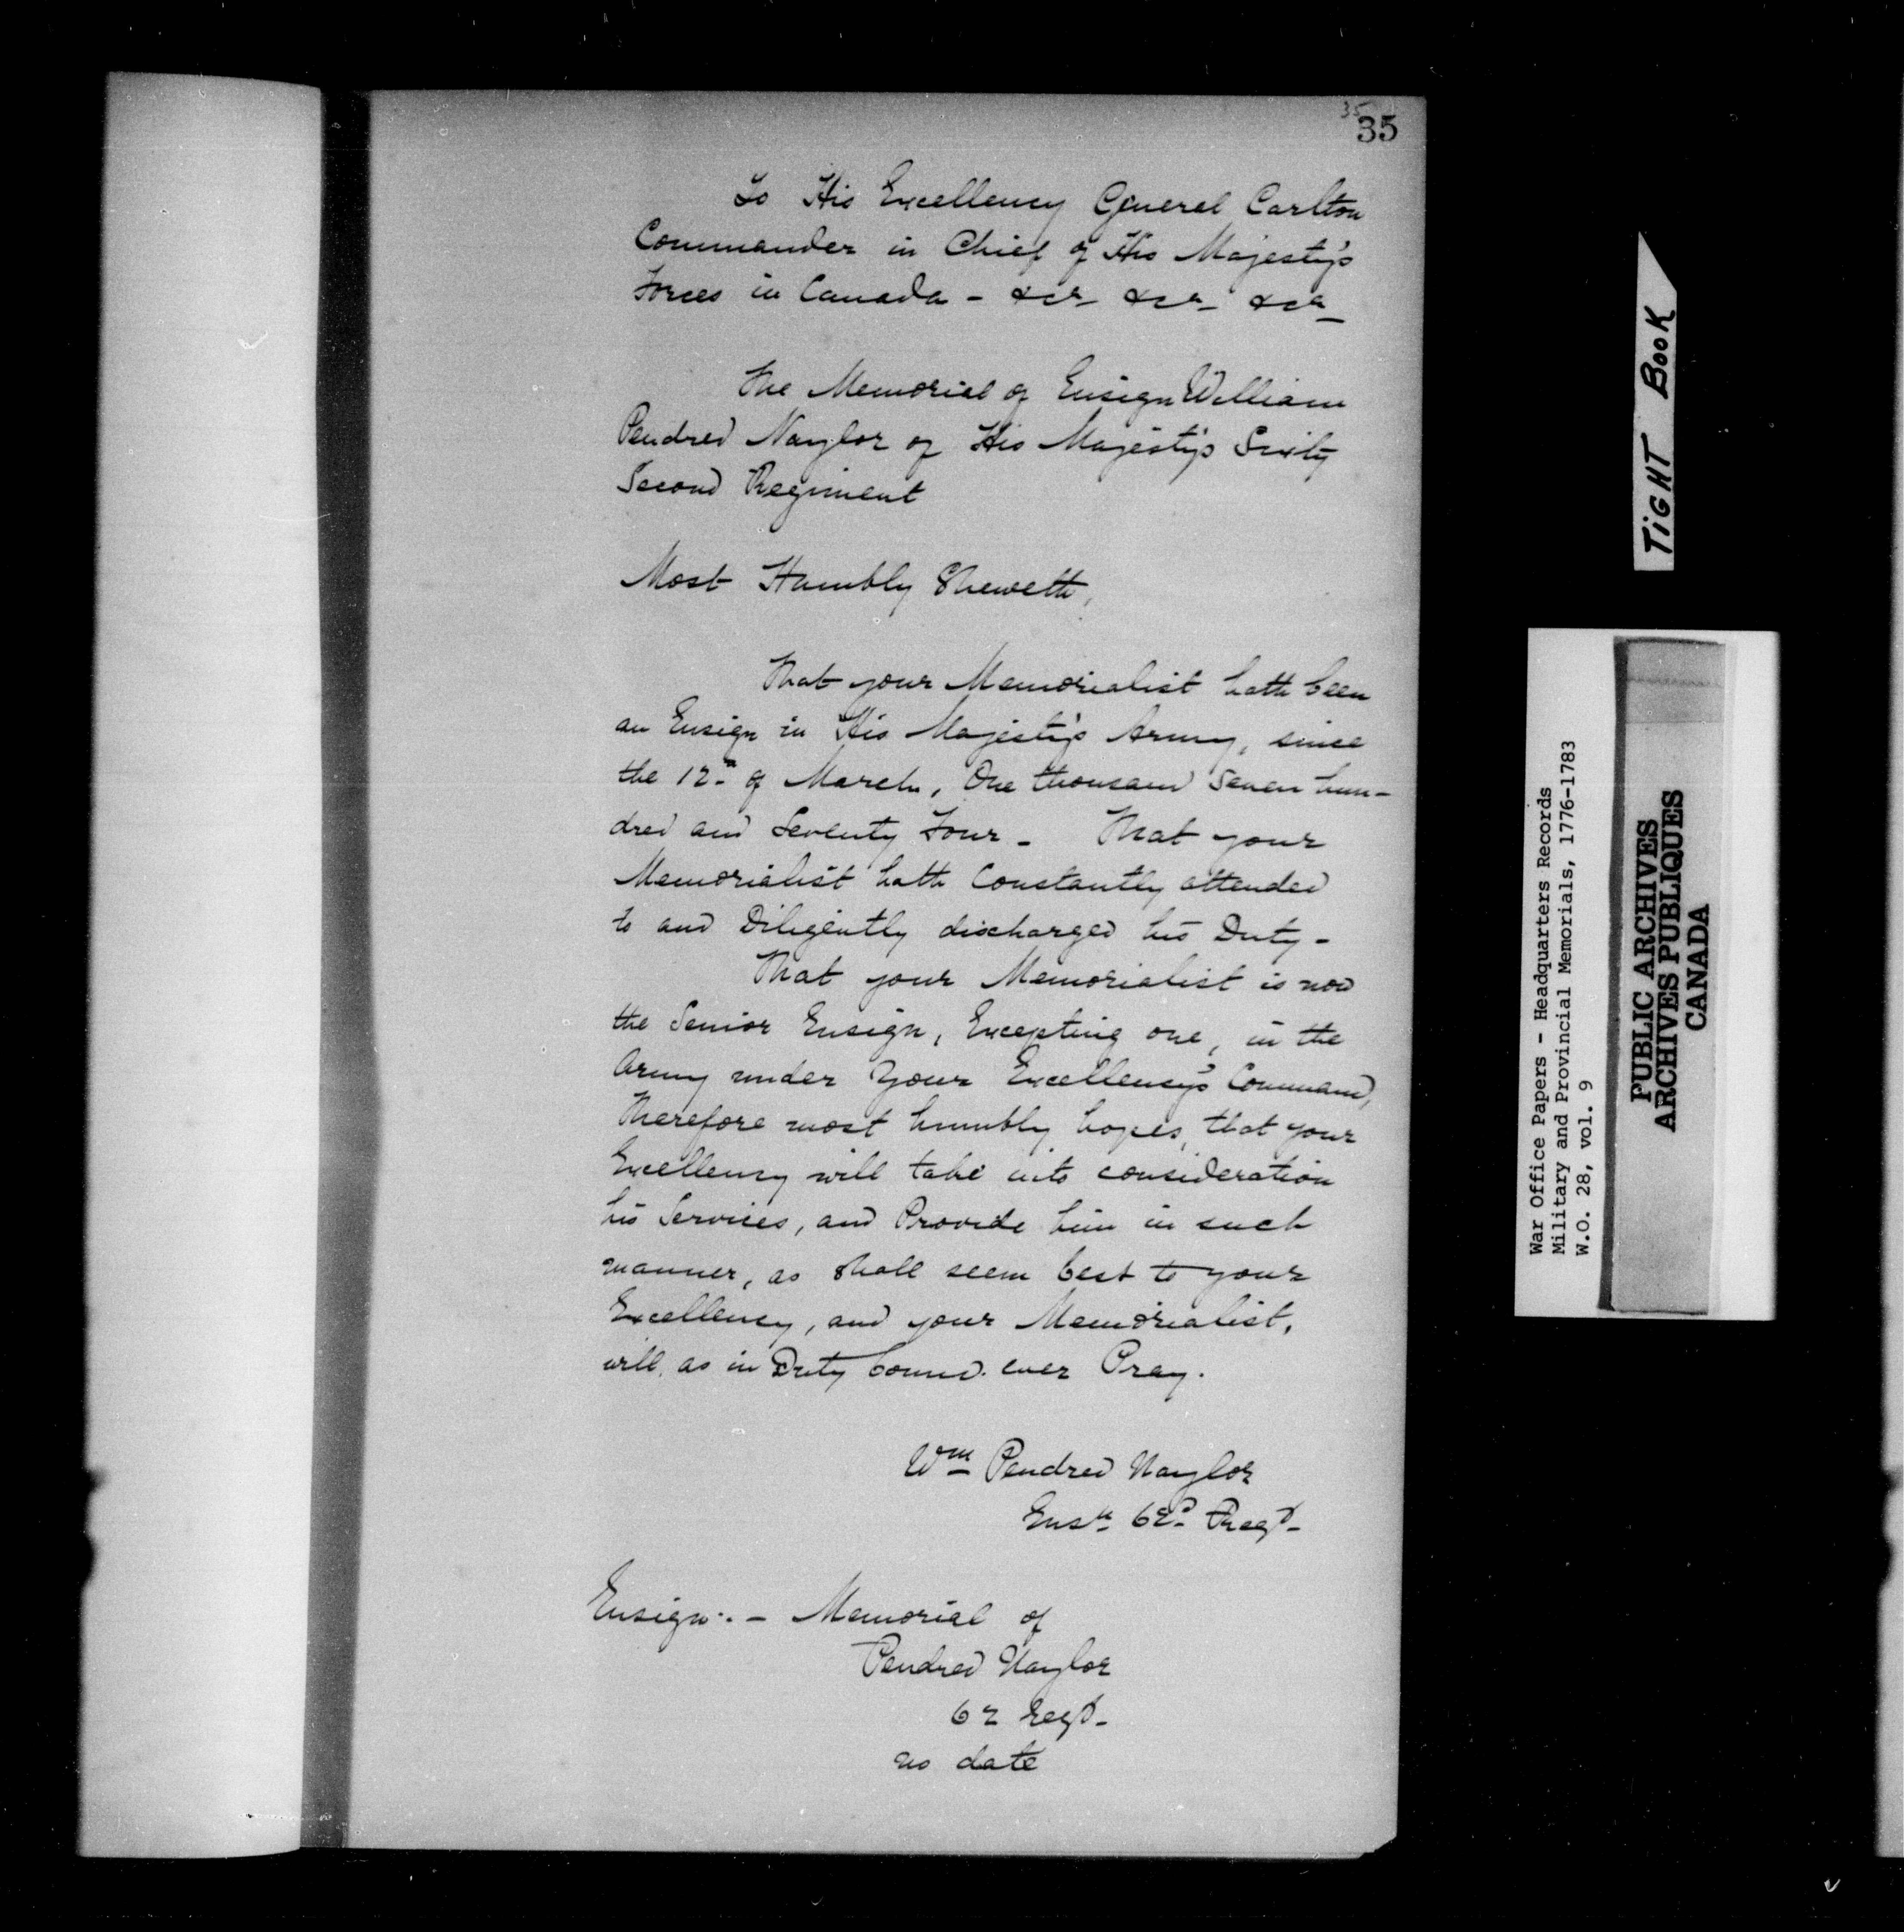 35
35
To His Excellency General Carlton
Commander in Chief of His Majesty's
Forces in Canada - &ca &ca - &ca
The Memorial of Ensign William
Pendred Naylor of His Majesty's Sixty
Second Regiment
Most Humbly Sheweth,
That your Memorialist hath been
an Ensign in His Majesty's Army, since
the 12th of March, One thousand Seven hun-
dred and Seventy Four - That your
Memorialist hath Constantly attended
to and Diligently discharged his Duty -
That your Memorialist is now
the Senior Ensign, Excepting one, in the
Army under Your Excellency's Command,
Therefore most humbly hopes, that your
Excellency will take into consideration
his Services, and Provide him in such
manner, as shall seem best to your
Excellency, and your Memorialist,
will, as in Duty bound. ever Pray.
Wm Pendred Naylor
Ensn 62d Regt -
Ensign:. - Memorial of
Pendred Naylor
62 Regt -
no date
TiGHT BOOK
War Office Papers - Headquarters Records
Military and Provincial Memorials, 1776-1783
W.O. 28, vol. 9
PUBLIC ARCHIVES
ARCHIVES PUBLIQUES
CANADA